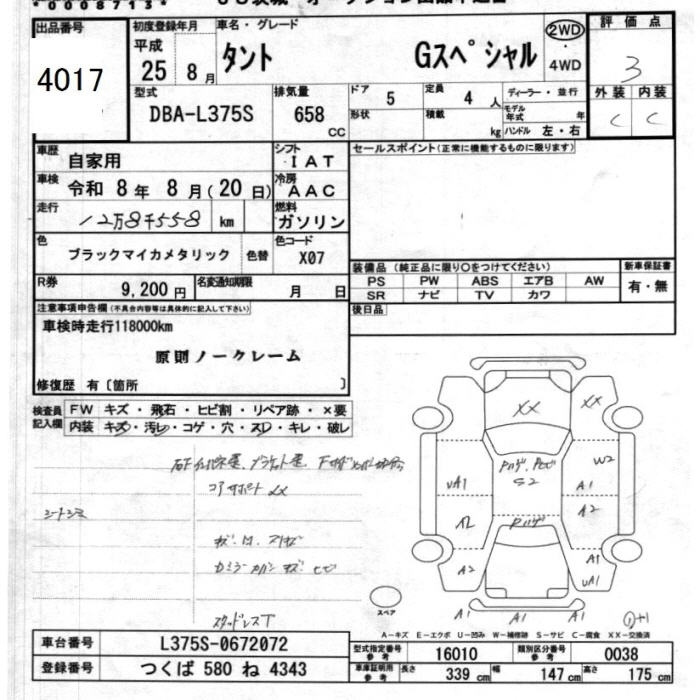 *0008713*
出品番号
4017
初度登録年月
平成
25 8月
車名・グレード
タント Gスペシャル
2WD
・
4WD
評価点
3
外装 内装
C C
型式
DBA-L375S
排気量
658
cc
ドア
5
定員
4 人
形状
積載
kg
ディーラー・並行
モデル年式 年
ハンドル 左・右
車歴
自家用
シフト
IAT
車検
令和 8年 8月(20日)
冷房
AAC
走行
12万8千558 km
燃料
ガソリン
色
ブラックマイカメタリック
色替
色コード
X07
R券
9,200円
名変通知期限
月 日
セールスポイント(正常に機能するものに限ります)
装備品(純正品に限り○をつけてください)
PS PW ABS エアB AW
SR ナビ TV カワ
新車保証書
有・無
後日品
注意事項申告欄(不具合内容等は具体的に記入して下さい)
車検時走行118000km
原則ノークレーム
修復歴 有〔箇所 〕
検査員記入欄
FW キズ・飛石・ヒビ割・リペア跡・×要
内装 キズ・汚レ・コゲ・穴・スレ・キレ・破レ
コアサポート XX
シートシミ
スタッドレスT
XX
XX
W2
S2
UA1
A1
A2
A2
A2
A1
UA1
A1
A1
A1
スペア
A−キズ E−エクボ U−凹み W−補修跡 S−サビ C−腐食 XX−交換済
車台番号
L375S-0672072
登録番号
つくば 580 ね 4343
型式指定番号 参考
16010
類別区分番号 参考
0038
車庫証明用 参考
長さ 339 cm
幅 147 cm
高さ 175 cm